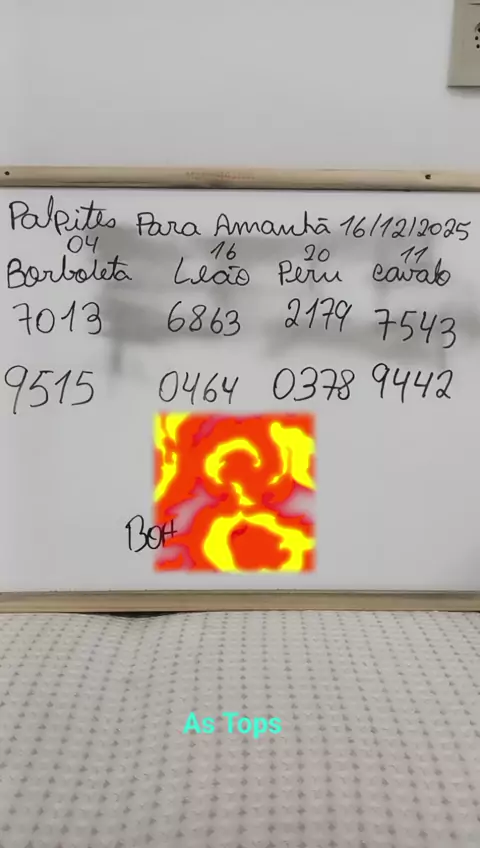 Palpites Para Amanhã 16/12/2025
04 16 20 11
Borboleta Leão Peru cavalo
7013 6863 2179 7543
9515 0464 0378 9442
As Tops